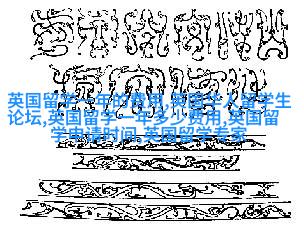 英国留学一年的费用,英国华人留学生
论坛,英国留学一年多少费用,英国留
学申请时间,英国留学专家